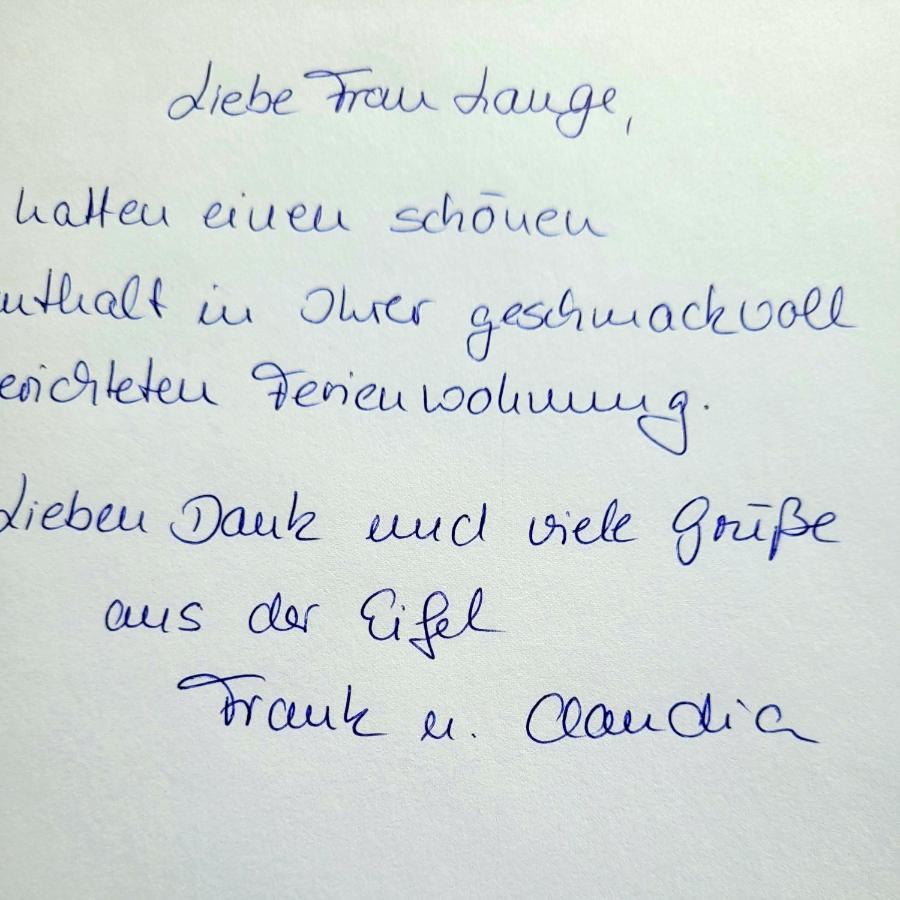 Liebe Frau Lange,
hatten einen schönen
nthalt in Ihrer geschmackvoll
erichteten Ferienwohnung.
Lieben Dank und viele Grüße
aus der Eifel
Frank u. Claudia